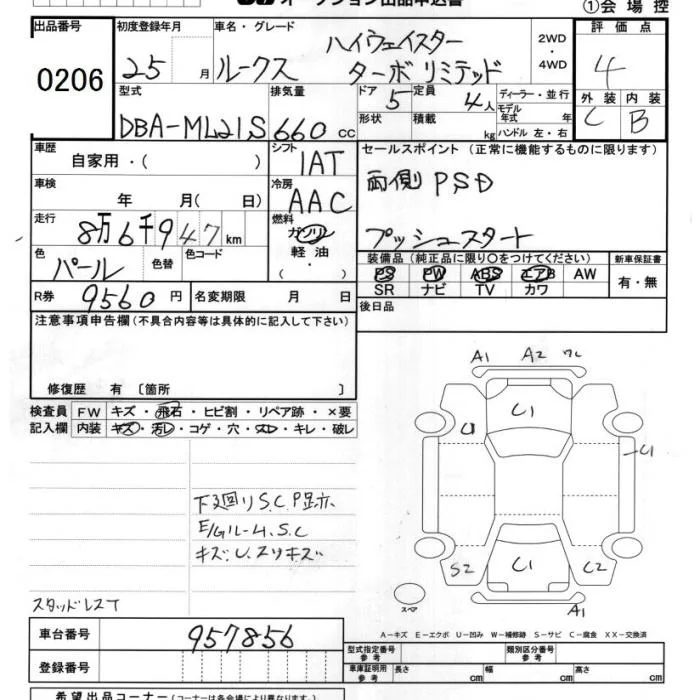 オークション出品申込書
①会場控
出品番号
0206
初度登録年月
25 月
車名・グレード
ルークス ハイウェイスター
ターボリミテッド
2WD
・
4WD
評価点
4
外装 内装
C B
型式
DBA-ML21S
排気量
660 cc
ドア 5
定員 4人
ディーラー・並行
モデル年式 年
形状
積載 kg
ハンドル 左・右
車歴
自家用・( )
シフト
IAT
セールスポイント (正常に機能するものに限ります)
両側 PSD
プッシュスタート
車検
年 月( 日)
冷房
AAC
走行
8万6千947 km
燃料
ガソリン
軽油
( ・ )
色
パール
色替
色コード
装備品 (純正品に限り○をつけてください)
PS PW ABS エアB AW
SR ナビ TV カワ
新車保証書
有・無
R券 9560 円
名変期限 月 日
後日品
注意事項申告欄 (不具合内容等は具体的に記入して下さい)
修復歴 有 〔箇所 〕
検査員
記入欄
FW キズ・飛石・ヒビ割・リペア跡・×要
内装 キズ・汚レ・コゲ・穴・スレ・キレ・破レ
A1 A2 ワレ
C1
U
C1
S2 C1 C2
A1
スペア
下廻りS.C.P跡
E/Gルーム.S.C
キズ:U.スリキズ
スタッドレスT
A-キズ E-エクボ U-凹み W-補修跡 S-サビ C-腐食 XX-交換済
車台番号 957856
登録番号
型式指定番号
参考
類別区分番号
参考
車庫証明用
参考
長さ cm 幅 cm 高さ cm
希望出品コーナー (コーナーは各会場により異なります)